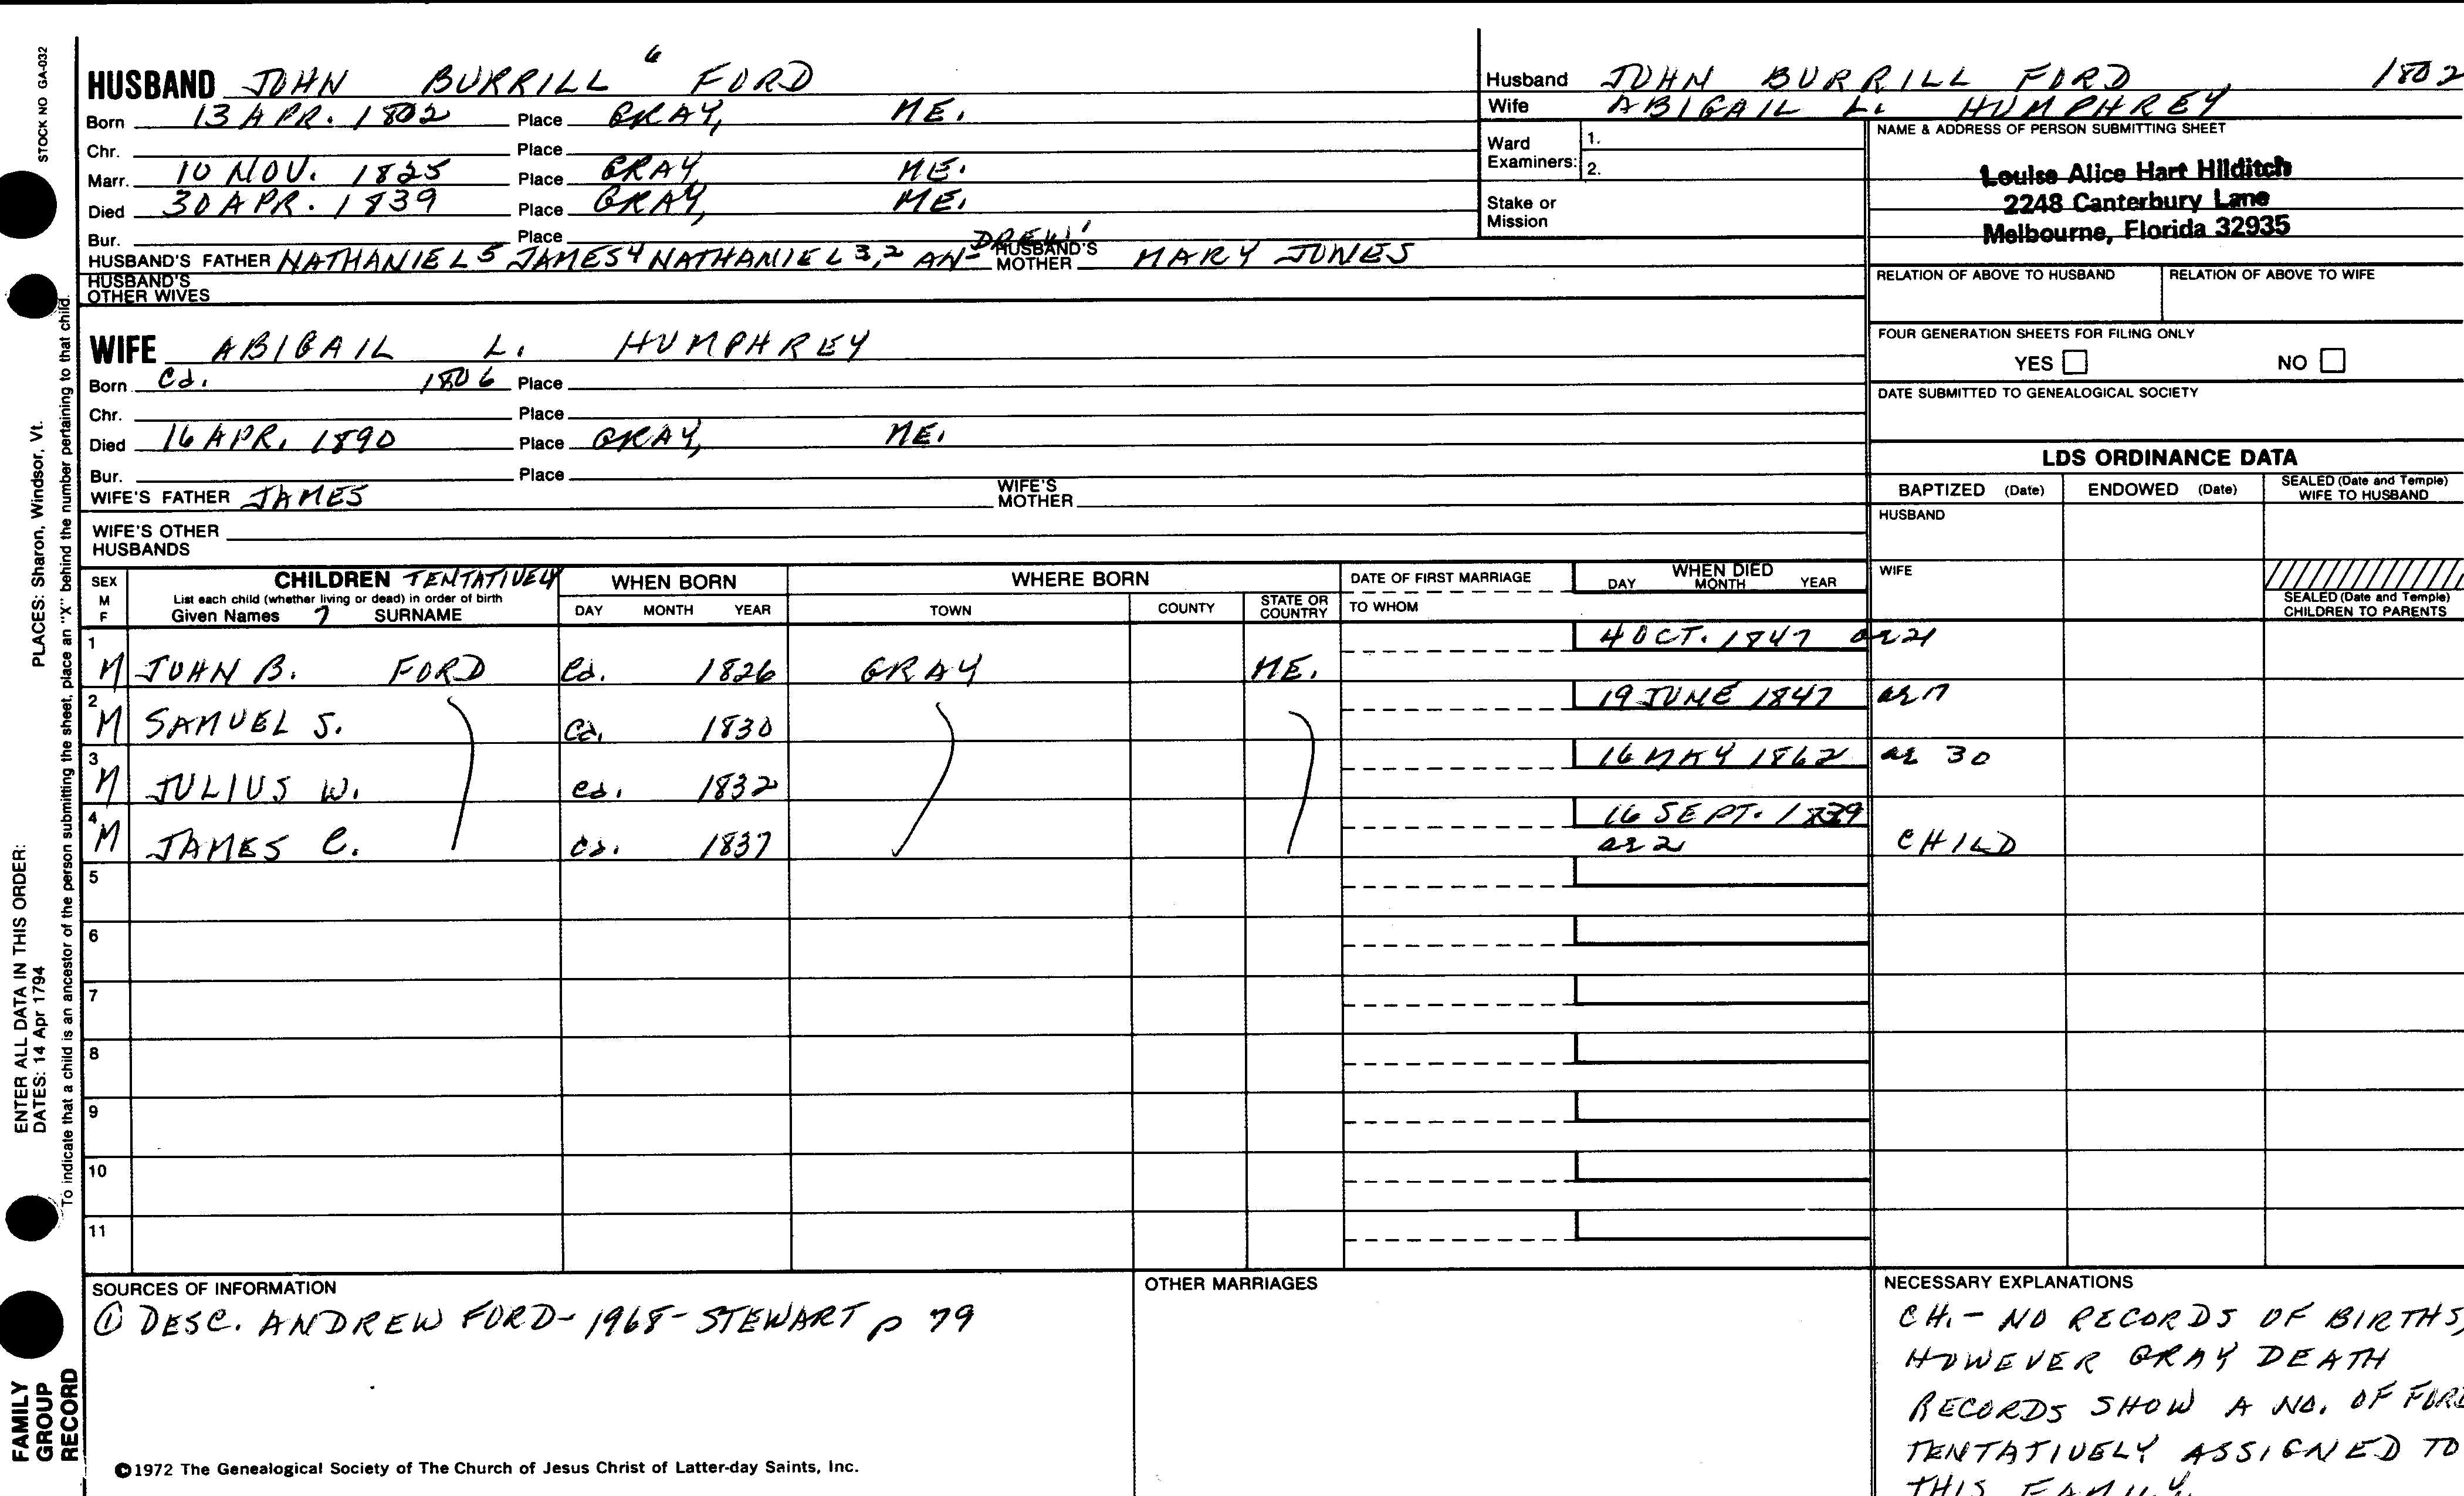 STOCK NO GA-032
HUSBAND JOHN BURRILL 6 FORD
Born 13 APR. 1802 Place GRAY, ME.
Chr. Place
Marr. 10 NOV. 1825 Place GRAY, ME.
Died 30 APR. 1839 Place GRAY, ME.
Bur. Place
HUSBAND'S FATHER NATHANIEL 5 JAMES 4 NATHANIEL 3,2 AN-DREW 1 HUSBAND'S MOTHER MARY JONES
HUSBAND'S OTHER WIVES
WIFE ABIGAIL L. HUMPHREY
Born Ca. 1806 Place
Chr. Place
Died 16 APR. 1890 Place GRAY, ME.
Bur. Place
WIFE'S FATHER JAMES WIFE'S MOTHER
WIFE'S OTHER HUSBANDS
Husband JOHN BURRILL FORD, 1802
Wife ABIGAIL L. HUMPHREY
Ward Examiners: 1.
2.
Stake or Mission
NAME & ADDRESS OF PERSON SUBMITTING SHEET
Louise Alice Hart Hilditch
2248 Canterbury Lane
Melbourne, Florida 32935
RELATION OF ABOVE TO HUSBAND RELATION OF ABOVE TO WIFE
FOUR GENERATION SHEETS FOR FILING ONLY
YES NO
DATE SUBMITTED TO GENEALOGICAL SOCIETY
LDS ORDINANCE DATA
BAPTIZED (Date) ENDOWED (Date) SEALED (Date and Temple) WIFE TO HUSBAND
HUSBAND
WIFE
SEALED (Date and Temple) CHILDREN TO PARENTS
SEX M F
CHILDREN TENTATIVELY
List each child (whether living or dead) in order of birth
Given Names 7 SURNAME
WHEN BORN
DAY MONTH YEAR
WHERE BORN
TOWN COUNTY STATE OR COUNTRY
DATE OF FIRST MARRIAGE
TO WHOM
WHEN DIED
DAY MONTH YEAR
1 M JOHN B. FORD Ca. 1826 GRAY ME. 4 OCT. 1847 ae 21
2 M SAMUEL S. Ca. 1830 19 JUNE 1847 ae 17
3 M JULIUS W. ca. 1832 16 MAY 1862 ae 30
4 M JAMES C. ca. 1837 16 SEPT. 1839 ae 2 CHILD
5
6
7
8
9
10
11
SOURCES OF INFORMATION
① DESC. ANDREW FORD-1968-STEWART p 79
OTHER MARRIAGES
NECESSARY EXPLANATIONS
CH.- NO RECORDS OF BIRTHS,
HOWEVER GRAY DEATH
RECORDS SHOW A NO. OF FORD
TENTATIVELY ASSIGNED TO
THIS FAMILY
©1972 The Genealogical Society of The Church of Jesus Christ of Latter-day Saints, Inc.
FAMILY GROUP RECORD
ENTER ALL DATA IN THIS ORDER:
DATES: 14 Apr 1794
PLACES: Sharon, Windsor, Vt.
To indicate that a child is an ancestor of the person submitting the sheet, place an "X" behind the number pertaining to that child.